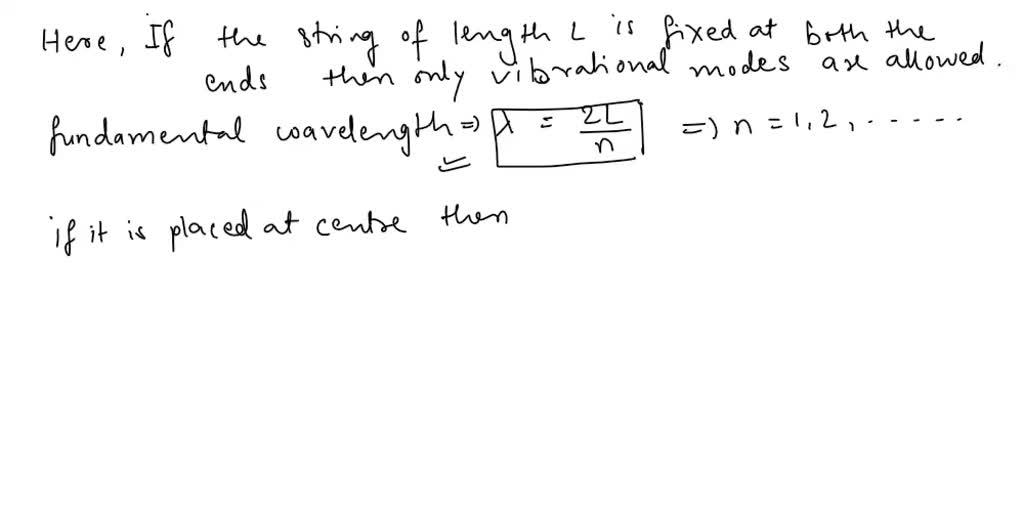 Here, If the string of length L is fixed at both the
ends then only vibrational modes are allowed.
fundamental wavelength ⇒ λ = 2L/n ⇒ n = 1, 2, .....
if it is placed at centre then